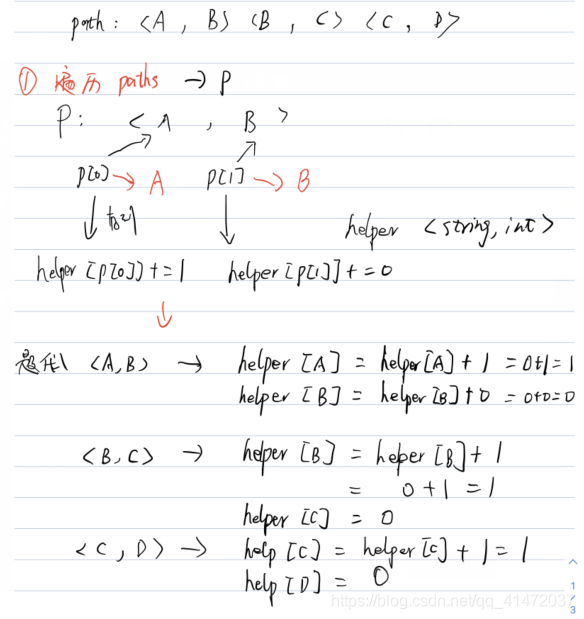 path : <A , B> <B , C> <C , D>
① 遍历 paths → P
P : <A , B >
p[0] → A p[1] → B
helper <string, int>
helper [p[0]] += 1 helper [p[1]] += 0
<A,B> → helper [A] = helper[A] + 1 = 0+1 = 1
helper [B] = helper [B] + 0 = 0+0=0
<B,C> → helper [B] = heper [B] + 1
= 0+1 = 1
helper [C] = 0
<C , D> → help [C] = helper [C] + 1 = 1
help [D] = 0
1
/
3
https://blog.csdn.net/qq_41472037